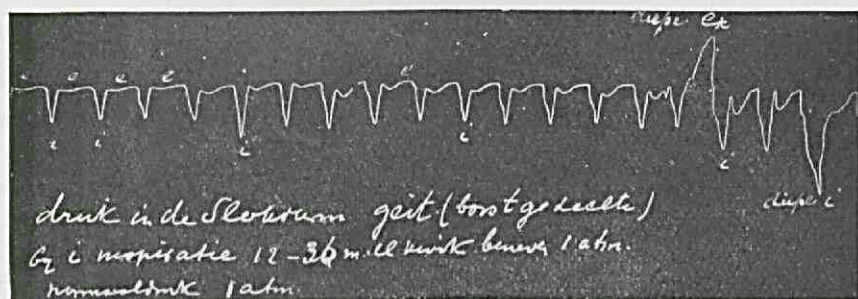 diepe ex
e e e e e
i i i i i
diepe i
druk in de Slokdarm geit (borstgedeelte)
by i inspiratie 12-36 m.ll kwik beneden 1 atm.
normaaldruk 1 atm.